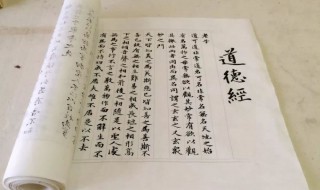 道德經
老子
道可道非常道名可名非常名無名天地之始
有名萬物之母常無欲以觀其妙常有欲以觀
其徼此兩者同出而異名同謂之玄玄之又玄眾
妙之門
天下皆知美之為美斯惡已皆知善之為善斯不
善已故有無之相生難易之相成長短之相形高
下之相傾音聲之相和前後之相隨是以聖人處
無為之事行不言之教萬物作而不辭生而不
有為而不恃功成不居夫唯不居是以不去